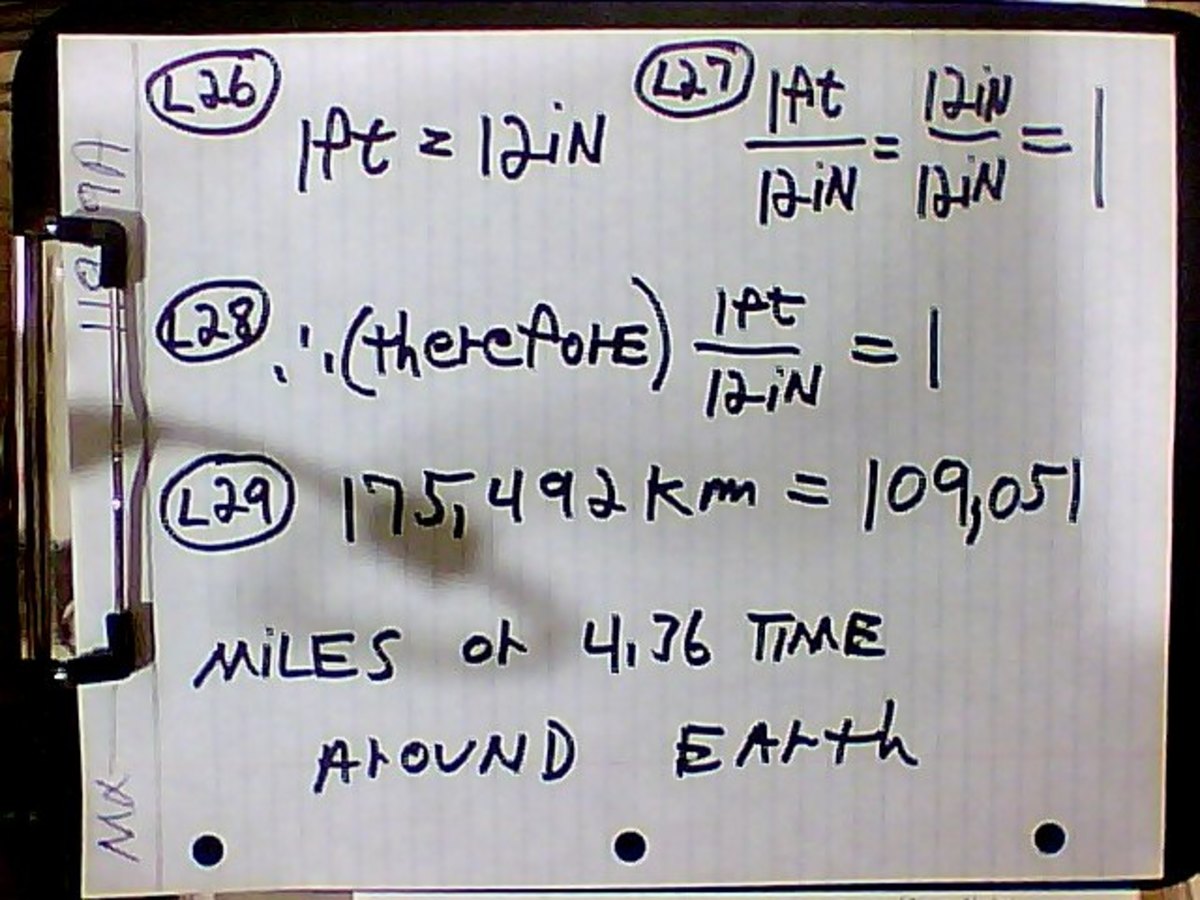 L26 1ft = 12iN
L27 1ft/12iN = 12iN/12iN = 1
L28 ∴ (therefore) 1ft/12iN = 1
L29 175,492 km = 109,051
MiLES or 4.36 TIME
ArOUND EArth